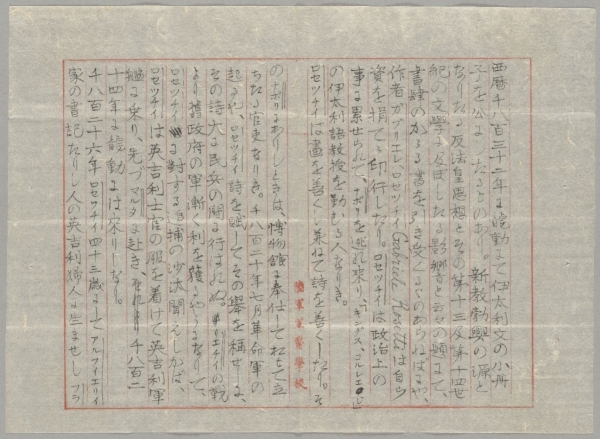 西暦千八百三十二年に龍動にて伊太利文の小冊
子を公にしたるものあり。新教勧興の源と
なりたる反法皇思想とその第十三及第十四世
紀の文学に及ぼしたる影響と云ふ題にて、
書肆のかゝる書を引き受くるものあらねばにや、
作者ガブリエレ、ロセツチイ Gabriele Rosetti は自ら
資を捐てゝ印行したり。ロセツチイは政治上の
事に累せられて、ナポリを逃れ来り、キングス、コルレエジ
の伊太利語教授を勤むる人なりき。
ロセツチイは画を善くし兼ねて詩を善くしたり。そ
陸軍軍医学校
のナポリにありしときは、博物館に奉仕して
たる官吏なりき。千八百二十年七月革命軍の
起るや、ロセツチイ詩を賦して、その挙を称せしに、
その詩大に民安の間に行はれぬ。
より旧政府の軍漸く利を獲るやうになりて、
ロセツチイに対する逮捕の沙汰聞えしかば、
ロセツチイは英吉利士官の服を着けて英吉利軍
艦に乗り、先づマルタに赴き、それより千八百二
十四年に龍動には来りしなり。
千八百二十六年ロセツチイ四十三歳にしてアルフイエリイ
家の書記たりし人の英吉利婦人に生ませし フラ